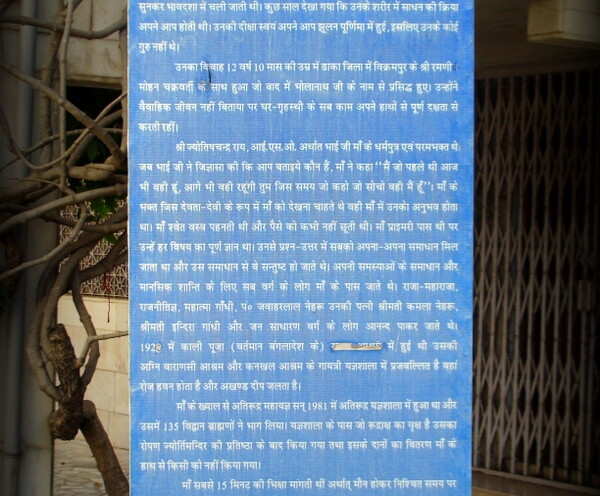 सुनकर भावदशा में चली जाती थी। कुछ साल देखा गया कि उनके शरीर में साधन की क्रिया
अपने आप होती थी। उनकी दीक्षा स्वयं अपने आप झूलन पूर्णिमा में हुई, इसलिए उनके कोई
गुरु नहीं थे।
उनका विवाह 12 वर्ष 10 मास की उम्र में ढाका जिला में विक्रमपुर के श्री रमणी
मोहन चक्रवर्ती के साथ हुआ जो बाद में भोलानाथ जी के नाम से प्रसिद्ध हुए। उन्होंने
वैवाहिक जीवन नहीं बिताया पर घर-गृहस्थी के सब काम अपने हाथों से पूर्ण दक्षता से
करती रहीं।
श्री ज्योतिषचन्द्र राय, आई.एस.ओ. अर्थात भाई जी माँ के धर्मपुत्र एवं परमभक्त थे
जब भाई जी ने जिज्ञासा की कि आप बताइये कौन हैं, माँ ने कहा "मैं जो पहले थी आज
भी वही हूं, आगे भी वही रहूंगी तुम जिस समय जो कहो जो सोचो वही मैं हूँ"। माँ के
भक्त जिस देवता-देवी के रूप में माँ को देखना चाहते थे वही माँ में उनको अनुभव होता
था। माँ श्वेत वस्त्र पहनती थी और पैसे को कभी नहीं छूती थी। माँ प्राइमरी पास थी पर
उन्हें हर विषय का पूर्ण ज्ञान था। उनसे प्रश्न-उत्तर में सबको अपना-अपना समाधान मिल
जाता था और उस समाधान से वे सन्तुष्ट हो जाते थे। अपनी समस्याओं के समाधान और
मानसिक शान्ति के लिए सब वर्ग के लोग माँ के पास जाते थे। राजा-महाराजा,
राजनीतिज्ञ, महात्मा गाँधी, पं० जवाहरलाल नेहरू उनकी पत्नी श्रीमती कमला नेहरू,
श्रीमती इन्दिरा गांधी और जन साधारण वर्ग के लोग आनन्द पाकर जाते थे।
में काली पूजा (वर्तमान बंगलादेश के) में हुई थी उसकी
अग्नि वाराणसी आश्रम और कनखल आश्रम के गायत्री यज्ञशाला में प्रजवल्लित है वहां
रोज हवन होता है और अखण्ड दीप जलता है।
माँ के ख्याल से अतिरूद्र महायज्ञ सन् 1981 में अतिरूद्र यज्ञशाला में हुआ था और
उसमें 135 विद्वान ब्राह्मणों ने भाग लिया। यज्ञशाला के पास जो रूद्राक्ष का वृक्ष है उसका
रोपण ज्योर्तिमन्दिर की प्रतिष्ठा के बाद किया गया तथा इसके दानों का वितरण माँ के
हाथ से किसी को नहीं किया गया।
माँ सबसे 15 मिनट की भिक्षा मांगती थीं अर्थात् मौन होकर निश्चित समय पर